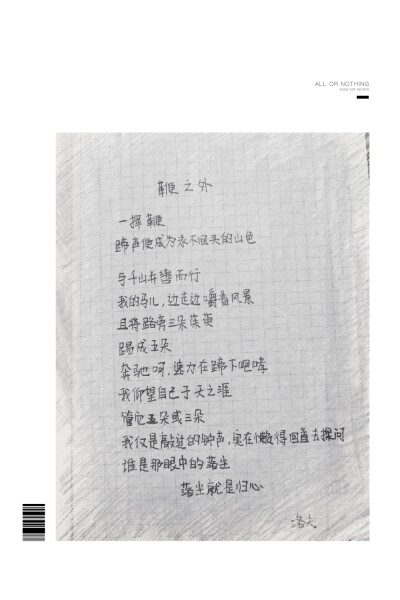 ALL OR NOTHING
NOW OR NEVER
鞭之外
一挥鞭
蹄声便成为永不回头的山色
与千山并辔而行
我的马儿,边走边嚼着风景
且将路旁三朵蒺藜
踢成五朵
奔驰呵,速力在蹄下咆哮
我仰望自己于天之涯
管它五朵或三朵
我仅是敲过的钟声,实在懒得回首去探问
谁是那眼中的落尘
落尘就是归心
洛夫